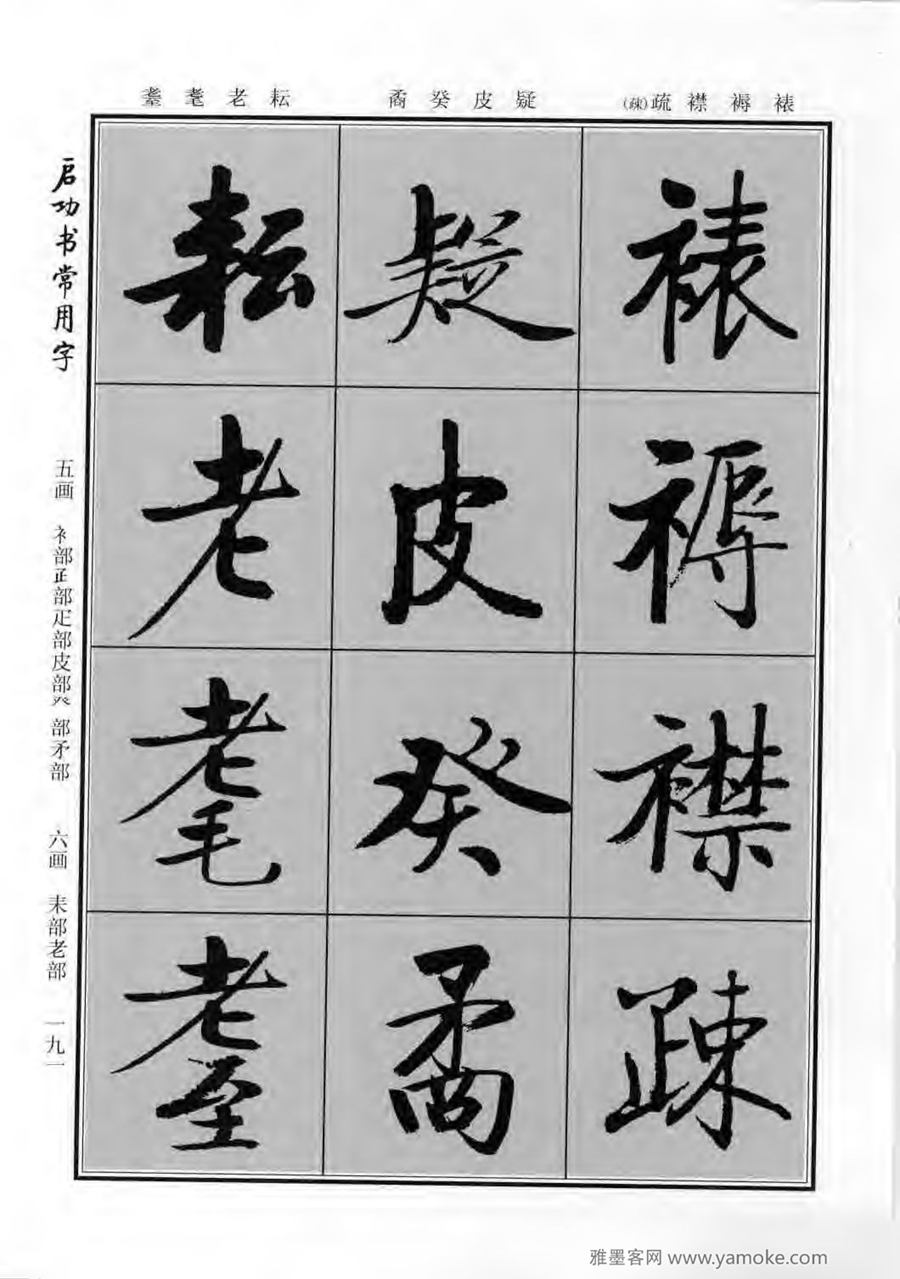 裱褥襟疏(疎)
疑皮癸矞
耘老耄耋
裱
褥
襟
疎
疑
皮
癸
矞
耘
老
耄
耋
启功书常用字
五画 衤部𤴔部疋部皮部癶部矛部 六画 耒部老部 一九一
雅墨客网 www.yamoke.com